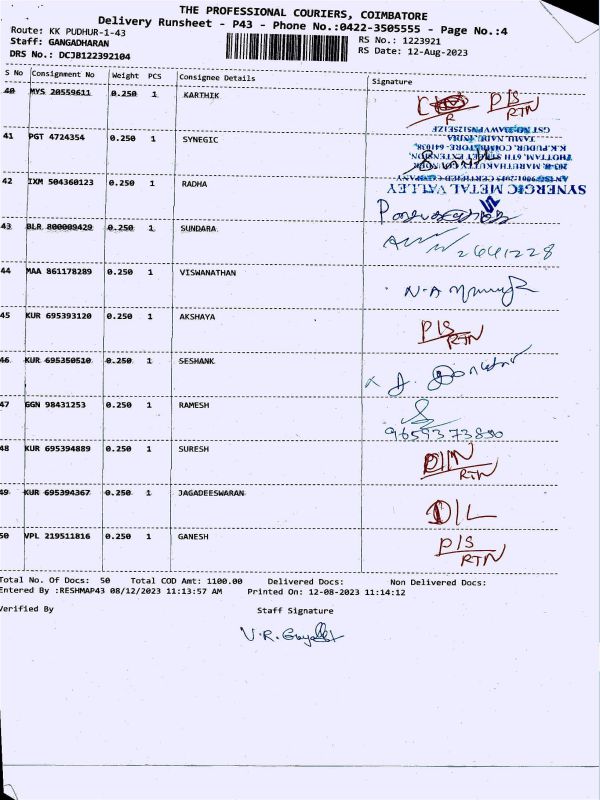 THE PROFESSIONAL COURIERS, COIMBATORE
Delivery Runsheet - P43 - Phone No.:0422-3505555 - Page No.:4
Route: KK PUDHUR-1-43
RS No.: 1223921
Staff: GANGADHARAN
RS Date: 12-Aug-2023
DRS No.: DCJB122392104
S No Consignment No Weight PCS Consignee Details Signature
40 MYS 20559611 0.250 1 KARTHIK P/S RTN
41 PGT 4724354 0.250 1 SYNEGIC
SYNERGIC METAL VALLEY
AN ISO 9001:2015 CERTIFIED COMPANY
THOTTAM, 6TH STREET EXTENSION,
K.K.PUDUR, COIMBATORE- 641038.
TAMIL NADU, INDIA
42 IXM 504360123 0.250 1 RADHA
43 BLR 800009429 0.250 1 SUNDARA 2641228
44 MAA 861178289 0.250 1 VISWANATHAN
45 KUR 695393120 0.250 1 AKSHAYA P/S RTN
46 KUR 695350510 0.250 1 SESHANK
47 GGN 98431253 0.250 1 RAMESH
48 KUR 695394889 0.250 1 SURESH RTN
49 KUR 695394367 0.250 1 JAGADEESWARAN D/L
50 VPL 219511816 0.250 1 GANESH P/S RTN
Total No. Of Docs: 50 Total COD Amt: 1100.00 Delivered Docs: Non Delivered Docs:
Entered By :RESHMAP43 08/12/2023 11:13:57 AM Printed On: 12-08-2023 11:14:12
Verified By Staff Signature